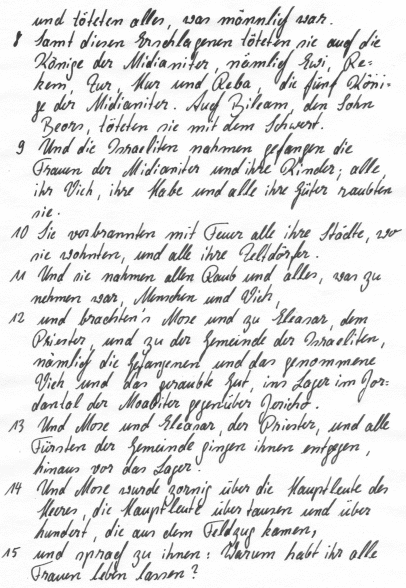 und töteten alles, was männlich war.
8 Samt diesen Erschlagenen töteten sie auch die
Könige der Midianiter, nämlich Ewi, Re-
kem, Zur, Hur und Reba, die fünf Köni-
ge der Midianiter. Auch Bileam, den Sohn
Beors, töteten sie mit dem Schwert.
9 Und die Israeliten nahmen gefangen die
Frauen der Midianiter und ihre Kinder; alle
ihr Vieh, ihre Habe und alle ihre Güter raubten
sie.
10 Sie verbrannten mit Feuer alle ihre Städte, wo
sie wohnten, und alle ihre Zeltdörfer.
11 Und sie nahmen allen Raub und alles, was zu
nehmen war, Menschen und Vieh,
12 und brachten's Mose und zu Eleasar, dem
Priester, und zu der Gemeinde der Israeliten,
nämlich die Gefangenen und das genommene
Vieh und das geraubte Gut, ins Lager im Jor-
dantal der Moabiter gegenüber Jericho.
13 Und Mose und Eleasar, der Priester, und alle
Fürsten der Gemeinde gingen ihnen entgegen,
hinaus vor das Lager.
14 Und Mose wurde zornig über die Hauptleute des
Heeres, die Hauptleute über tausen und über
hundert, die aus dem Feldzug kamen,
15 und sprach zu ihnen: Warum habt ihr alle
Frauen leben lassen?